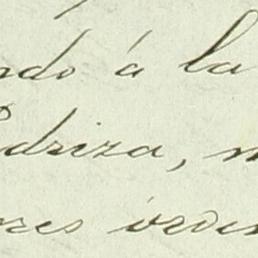 ndo á la
edriza, m
ores órden